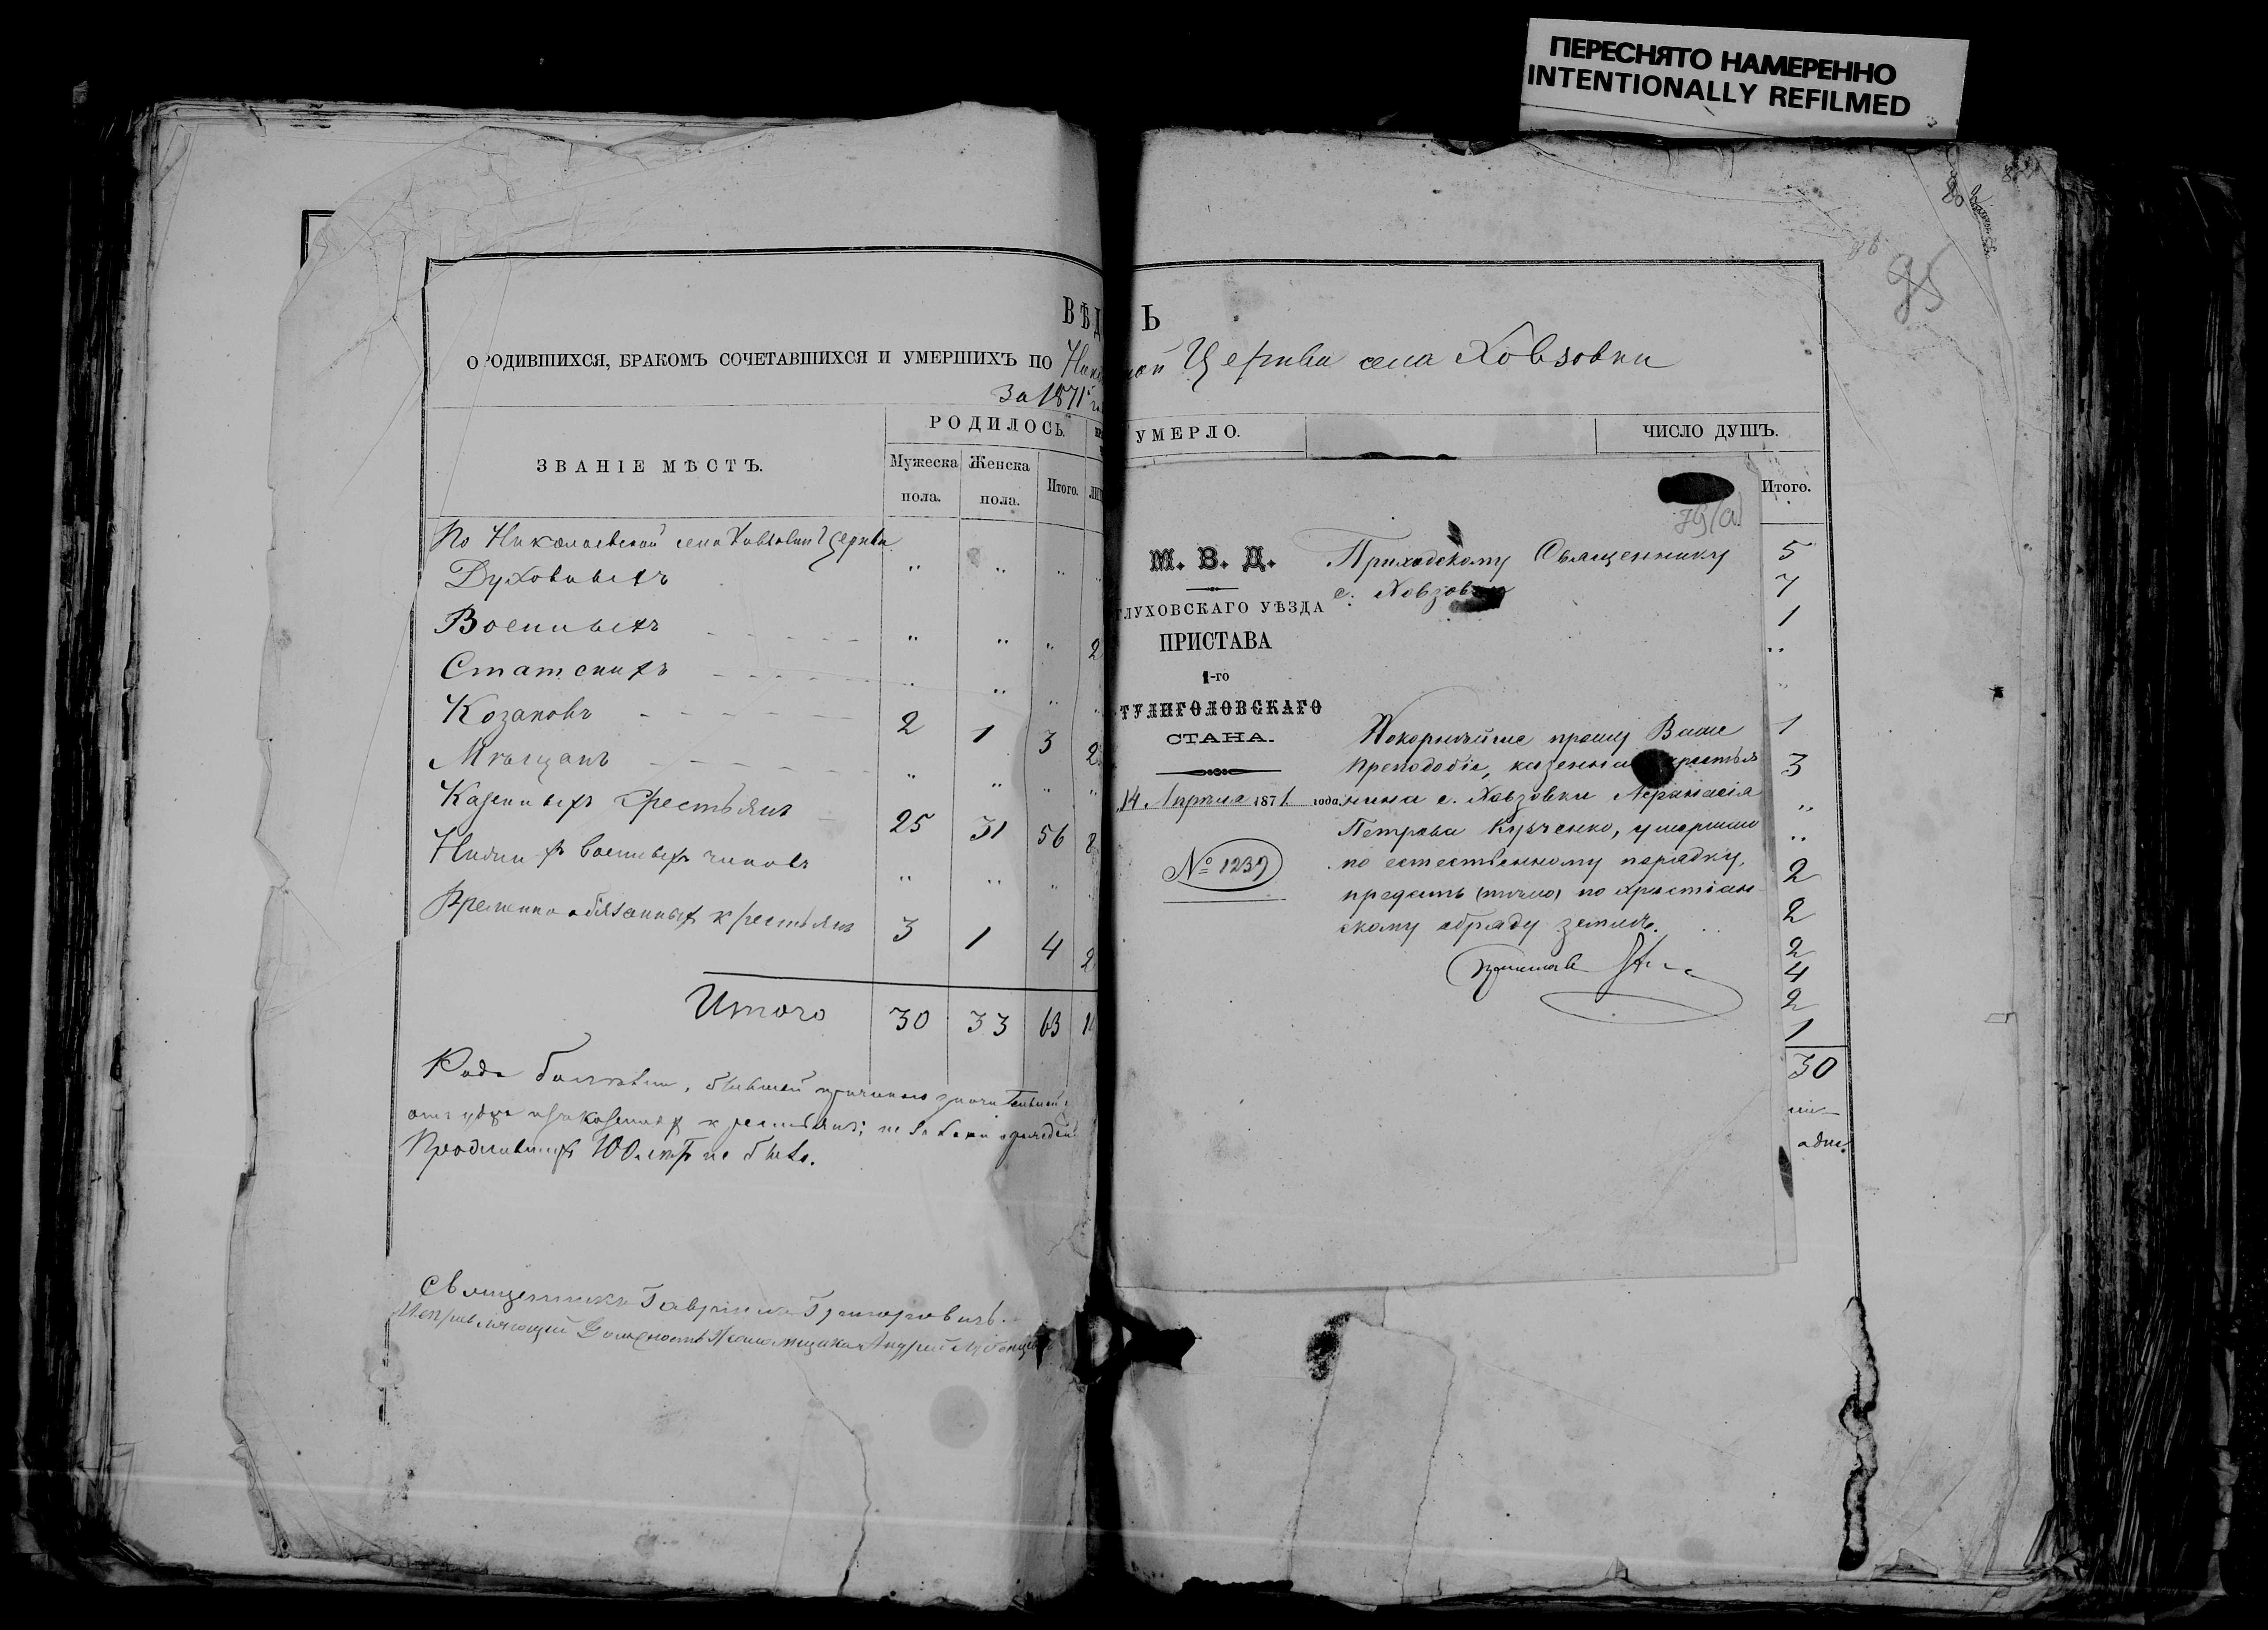 ПЕРЕСНЯТО НАМЕРЕННО
INTENTIONALLY REFILMED
95
ВѢД
О РОДИВШИХСЯ, БРАКОМЪ СОЧЕТАВШИХСЯ И УМЕРШИХЪ ПО
За 1871
ЗВАНІЕ МѢСТЪ.
РОДИЛОСЬ.
Мужеска пола.
Женска пола.
Итого.
По Николаевской села Хавзовки Церкви
Духовныхъ " " "
Военныхъ " " " 2
Статскихъ " " "
Козаковъ 2 1 3 2
Мѣщанъ " " "
Казенныхъ крестьянъ 25 31 56 8
Нижнихъ военныхъ чиновъ " " "
Временно обязанныхъ крестьянъ 3 1 4 2
Итого 30 33 63
Рода болѣзни, бывшей причиною
крестьянъ; не
Прожившихъ 100 летъ не было.
Священникъ Гавріилъ Григоровичъ.
Исправляющий Должность Псаломщика Андрей
Ь
Церкви села Ховзовки
УМЕРЛО.
ЧИСЛО ДУШЪ.
Итого.
5
7
1
"
"
1
3
"
"
2
2
2
4
2
1
30
79(а)
М. В. Д.
ГЛУХОВСКАГО УѢЗДА
ПРИСТАВА
1-го
ТУЛИГОЛОВСКАГО
СТАНА.
14 Апрѣля 1871 года.
№ 1239
Приходскому Священнику
с. Ховзовки
Покорнѣйше прошу Ваше
Преподобіе, казеннаго крестья
нина с. Хавзовки Афанасія
Петрова Курченко, умершаго
по естественному порядку,
предать (тѣло) по христіан
скому обряду землѣ.
Приставъ